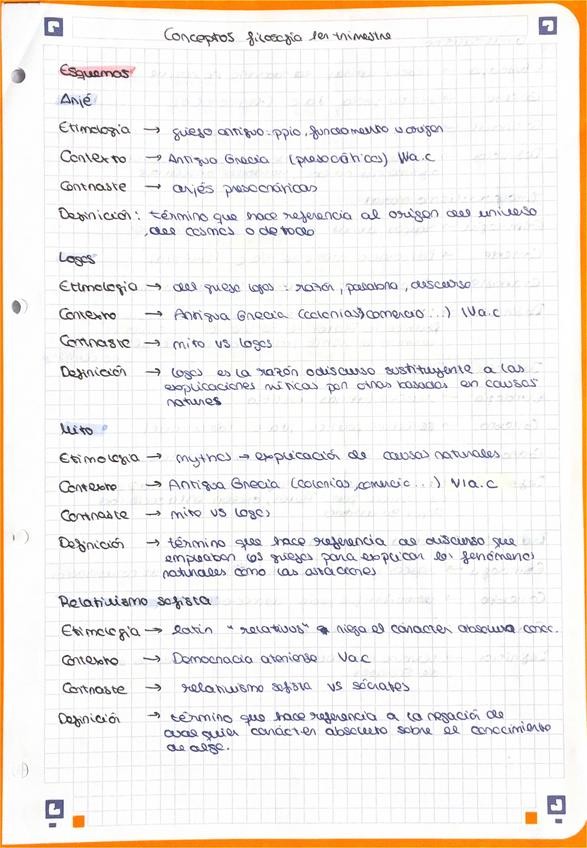 Conceptos filosofía 1er trimestre
Esquemas
Arjé
Etimología → griego antiguo: ppio, fundamento u origen
Contexto → Antigua Grecia (presocráticos) a.c
Contraste → arjés presocráticos
Definición: término que hace referencia al origen del universo
, del cosmos o de todo
Logos
Etimología → del griego logos: razón, palabra, discurso
Contexto → Antigua Grecia (colonias, comercio...) a.c
Contraste → mito vs logos
Definición → logos es la razón o discurso sustituyente a las
explicaciones míticas por otras basadas en causas
Mito
Etimología → mythos → explicación de causas naturales
Contexto → Antigua Grecia (colonias, comercio...) VI a.c
Contraste → mito vs logos
Definición → término que hace referencia al discurso que
empleaban los griegos para explicar los fenómenos
naturales como las estaciones
Relativismo sofista
Etimología → latín "relativus" niega el carácter absoluto conoc.
Contexto → Democracia ateniense V a.c
Contraste → relativismo sofista vs sócrates
Definición → término que hace referencia a la negación de
cualquier carácter absoluto sobre el conocimiento
de algo.